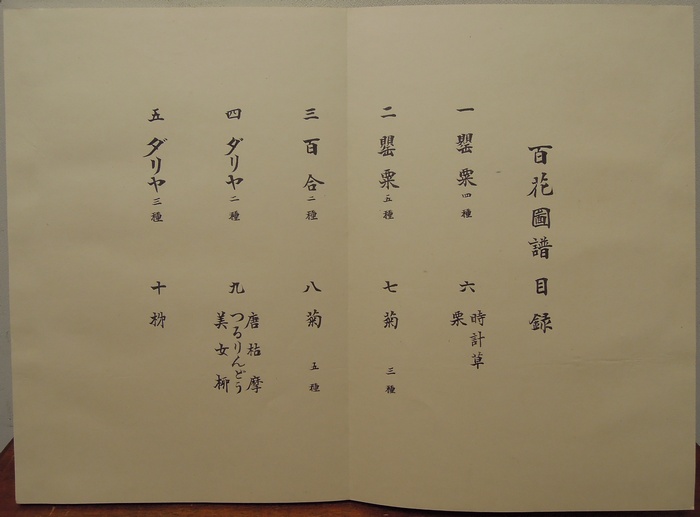 百花圖譜目録
一 罌粟 四種
二 罌粟 五種
三 百合 二種
四 ダリヤ 二種
五 ダリヤ 三種
六 時計草
栗
七 菊 三種
八 菊 五種
九 唐枯摩
つるりんどう
美女柳
十 柳